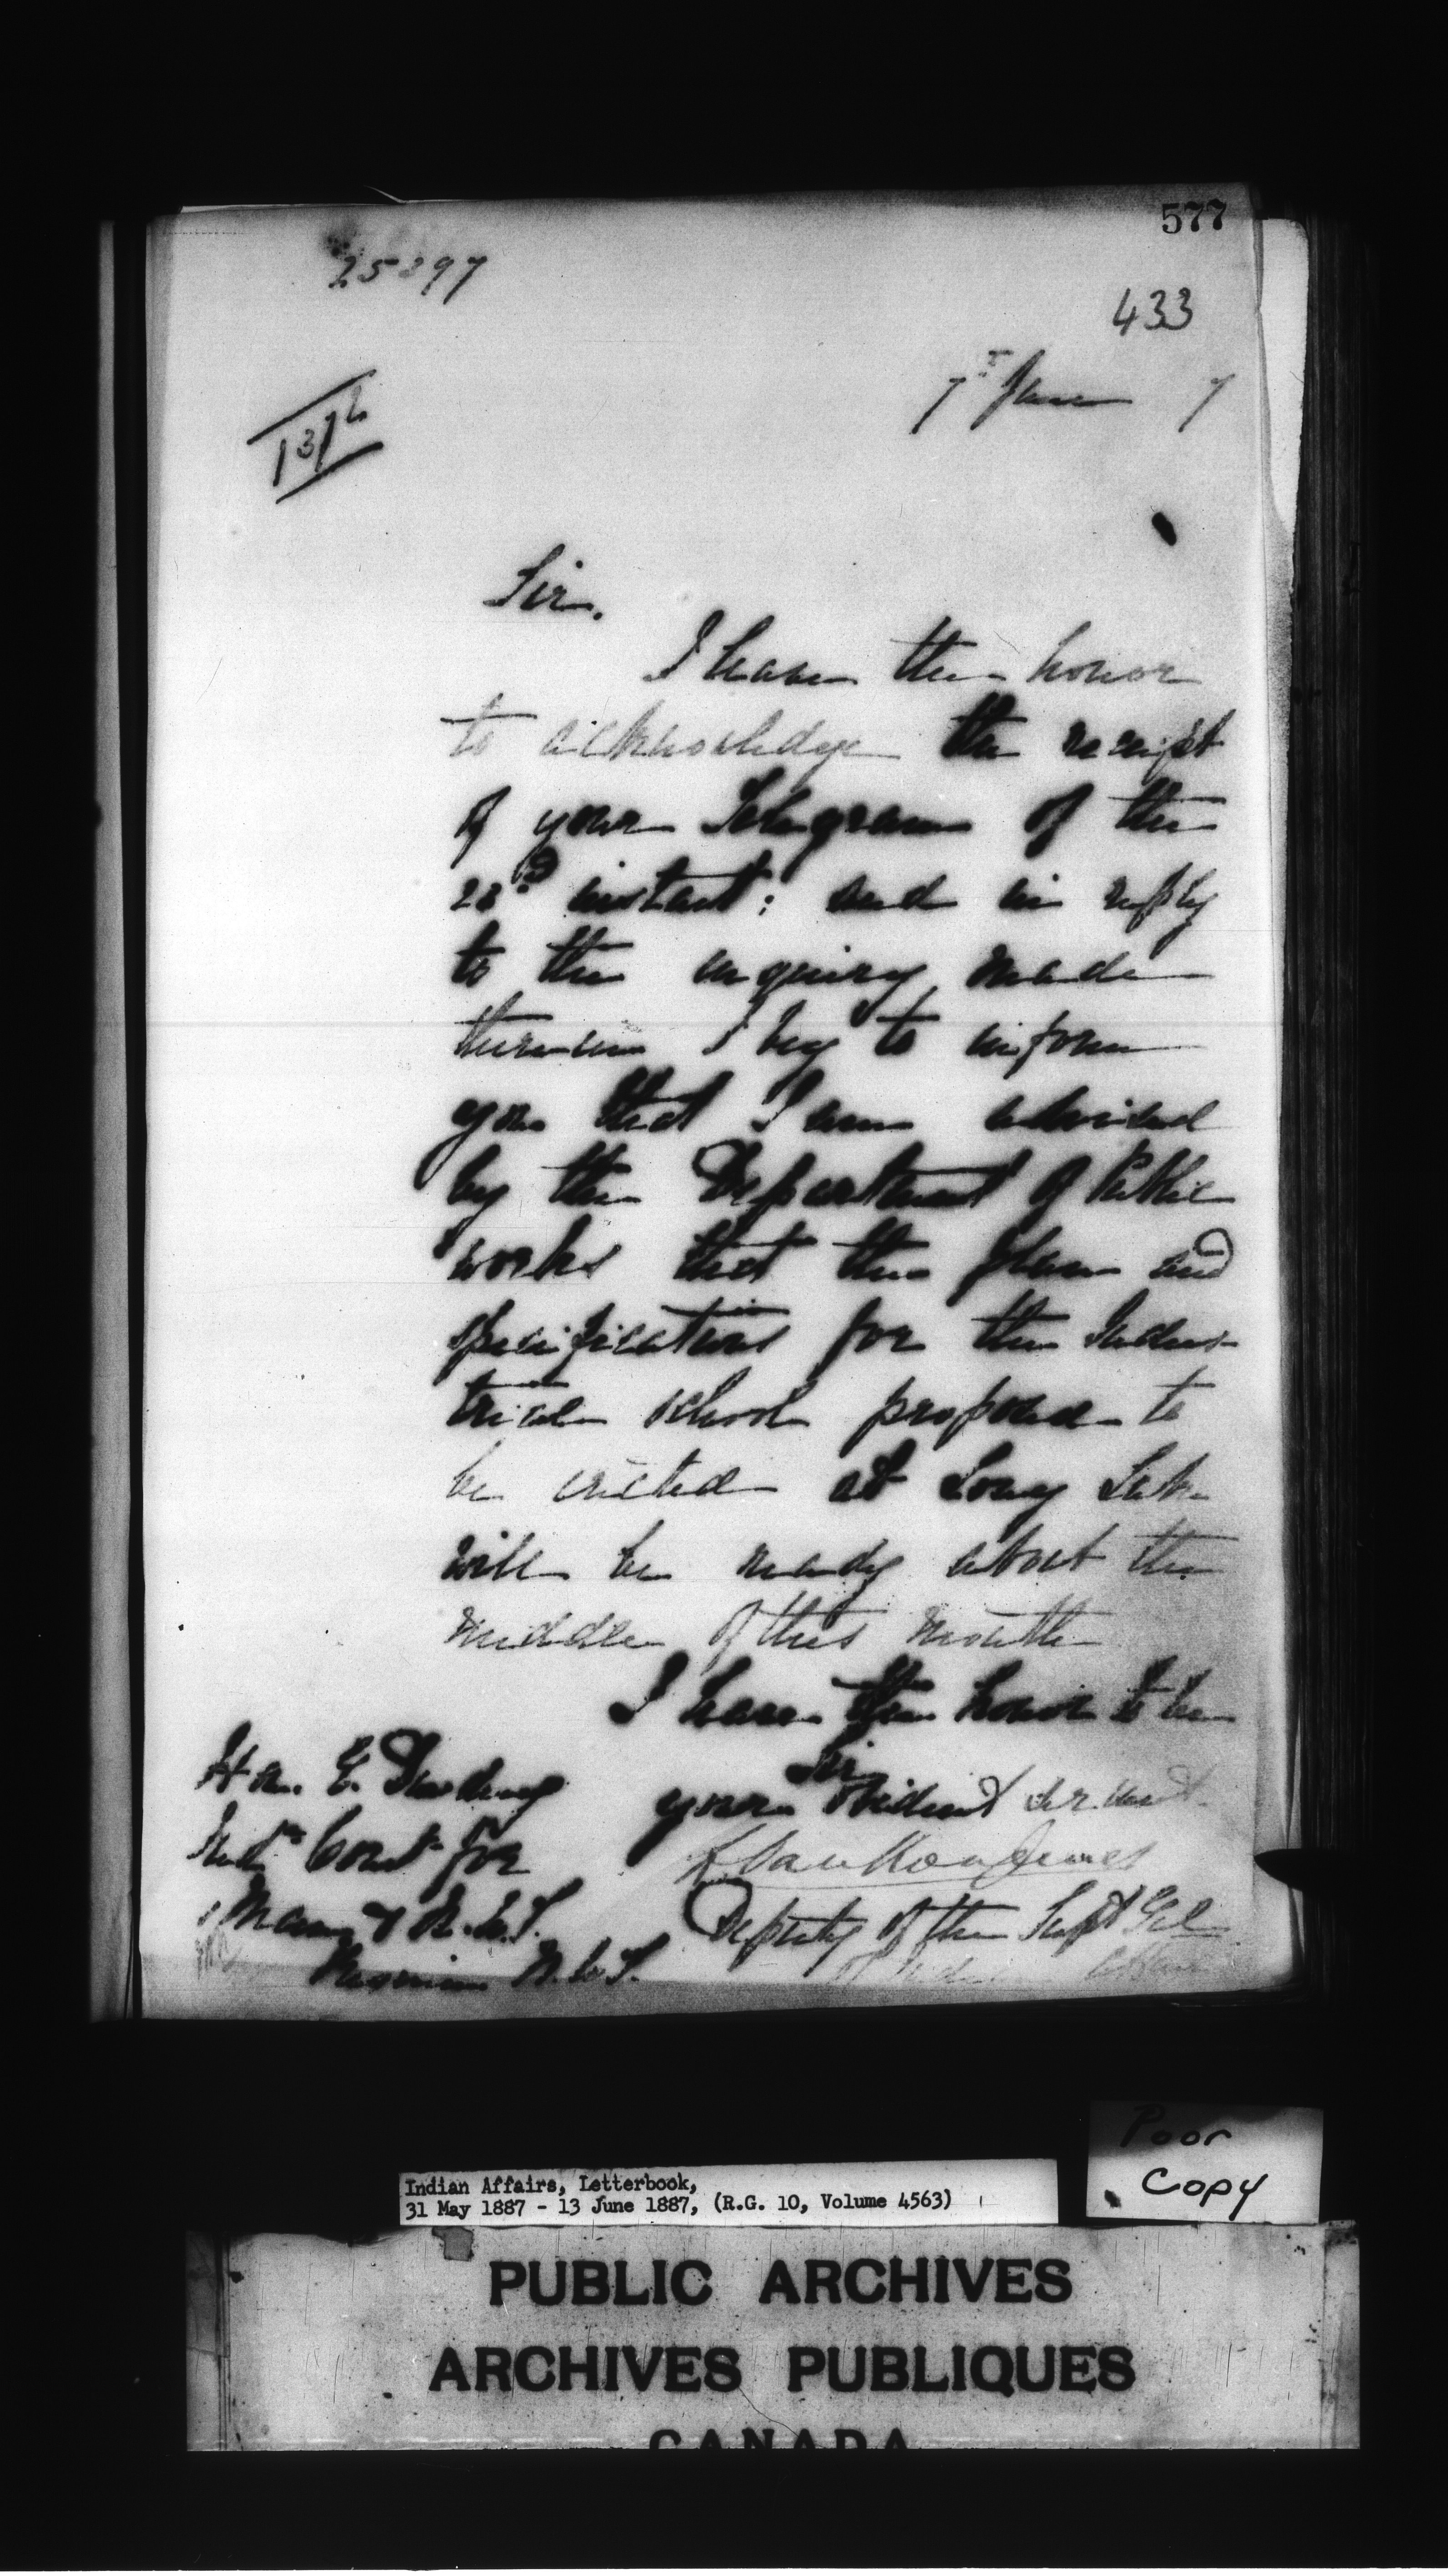 577
433
7th June 7
13th
Sir.
I have the honor
to acknowledge the receipt
of your Telegram of the
instant: and in reply
to the inquiry made
therein I beg to inform
you that I am advised
by the Department of Public
works that the plan and
specifications for the Indus-
trial school proposed to
be erected at Long Lake
will be ready about the
middle of this month
I have the honor to be
Sir
your obedient servant
L Vankoughnet
Deputy of the Supt Genl
of Indian Affairs
Hon. E. Dewdney
Indn Comr for
Man & N.W.T.
Regina N.W.T.
Poor
Copy
Indian Affairs, Letterbook,
31 May 1887 - 13 June 1887, (R.G. 10, Volume 4563)
PUBLIC ARCHIVES
ARCHIVES PUBLIQUES
CANADA